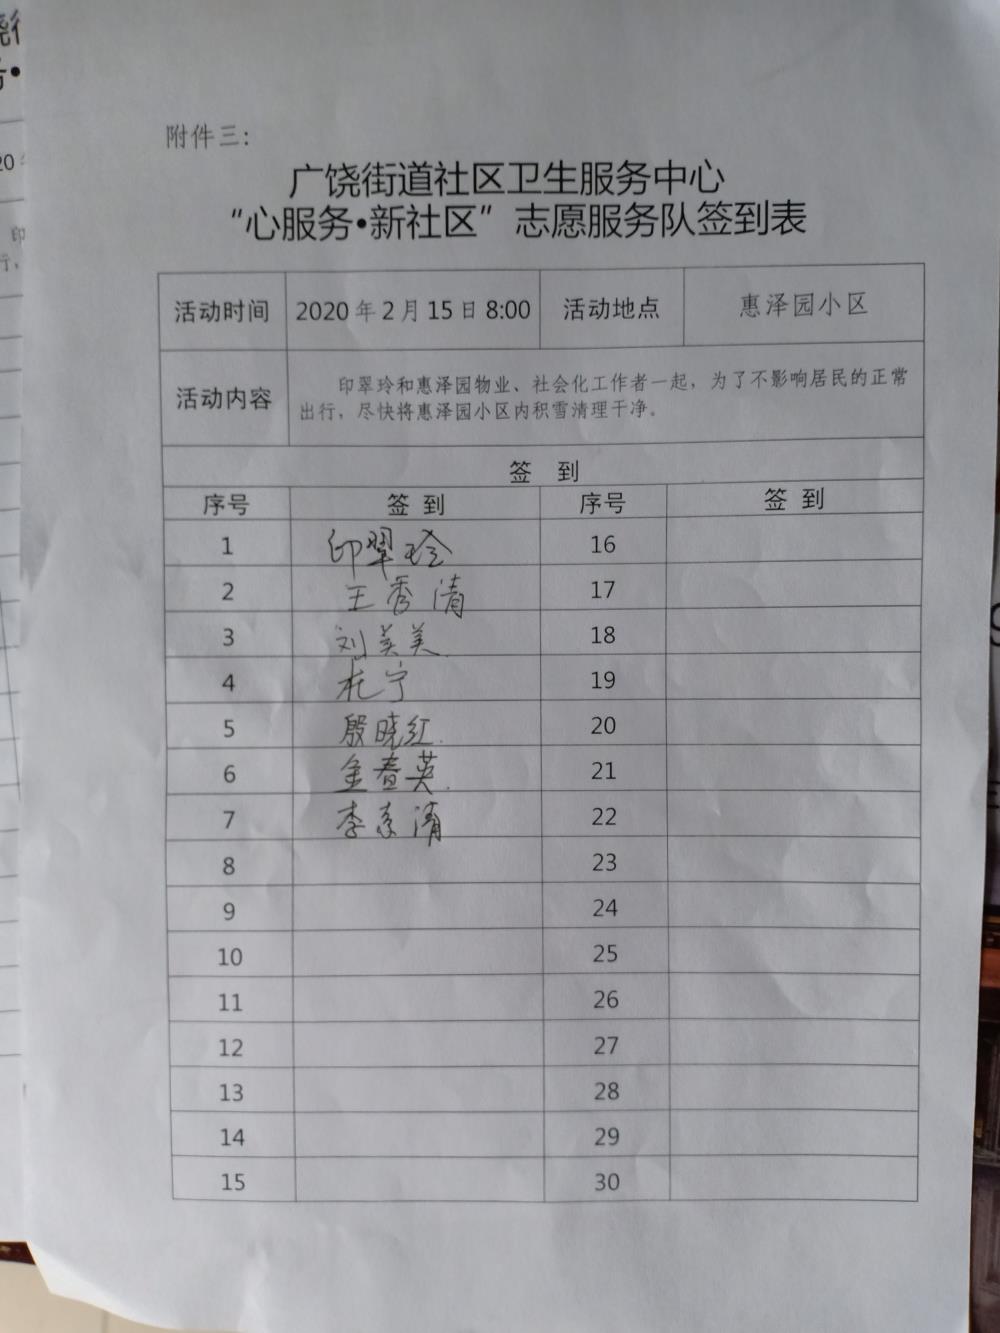 附件三：
广饶街道社区卫生服务中心
“心服务•新社区”志愿服务队签到表
活动时间 2020年2月15日8:00 活动地点 惠泽园小区
活动内容 印翠玲和惠泽园物业、社会化工作者一起，为了不影响居民的正常
出行，尽快将惠泽园小区内积雪清理干净。
签 到
序号 签到 序号 签到
1 印翠玲 16
2 王秀清 17
3 刘英美 18
4 杜宁 19
5 殷晓红 20
6 金春英 21
7 李素清 22
8 23
9 24
10 25
11 26
12 27
13 28
14 29
15 30